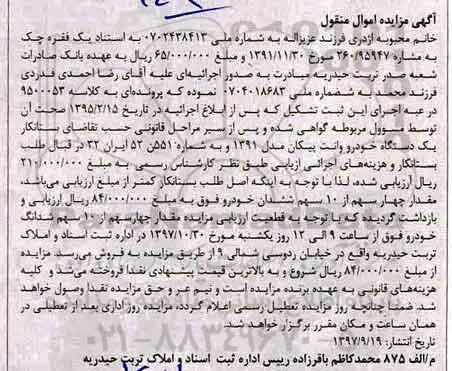 آگهی مزایده اموال منقول
خانم محبوبه اژدری فرزند عزیزاله به شماره ملی ۰۷۰۲۴۳۸۴۱۳ به استناد یک فقره چک
به مشاره ۲۶۰/۹۵۹۴۷ مورخ ۱۳۹۱/۱۱/۳۰ و مبلغ ۶۵/۰۰۰/۰۰۰ ریال به عهده بانک صادرات
شعبه صدر تربت حیدریه مبادرت به صدور اجرائیه‌ای علیه آقای رضا احمدی فدردی
فرزند محمد به شضماره ملی ۰۷۰۴۰۱۸۶۸۳ نموده که پرونده‌ای به کلاسه ۹۵۰۰۰۵۳
در عبه اجرای این ثبت تشکیل که پس از ابلاغ اجرائیه در تاریخ ۱۳۹۵/۲/۱۵ صحت آن
توسط مسوول مربوطه گواهی شده و پس از سیر مراحل قانونی حسب تقاضای بستانکار
یک دستگاه خودرو وانت پیکان مدل ۱۳۹۱ و به شماره ۵۵۱ن ۵۲ ایران ۳۲ در قبال طلب
بستانکار و هزینه‌های اجرائی ازیابی طبق نظر کارشناس رسمی به مبلغ ۲۱۰/۰۰۰/۰۰۰
ریال ارزیابی شده، لذا با توجه به اینکه اصل طلب بستانکار کمتر از مبلغ ارزیابی می‌باشد،
مقدار چهار سهم از ۱۰ سهم ششدان خودرو فوق به مبلغ ۸۴/۰۰۰/۰۰۰ ریال ارزیابی و
بازداشت گردیده که با توجه به قطعیت ارزیابی مزایده مقدار چهارسهم از ۱۰ سهم شدانگ
خودرو فوق از ساعت ۹ الی ۱۲ روز یکشنبه مورخ ۱۳۹۷/۱۰/۳۰ در اداره ثبت اسناد و املاک
تربت حیدریه واقع در خیابان ردوسی شمالی ۹ از طریق مزایده به فروش می‌رسد. مزایده
از مبلغ ۸۴/۰۰۰/۰۰۰ ریال شروع و به بالاترین قیمت پیشنهادی نقدا فروخته می‌شد و کلیه
هزینه‌های قانونی به عهده برنده مزایده است و نیم عر و حق مزایده نقدا وصول خواهد
شد. ضمنا چنانچه روز مزایده تعطیل رسمی اعلام گردد، مزایده روز اداری بعد از تعطیلی در
همان ساعت و مکان مقرر برگزار خواهد شد.
تاریخ انتشار: ۱۳۹۷/۹/۱۹
م/الف ۸۷۵ محمدکاظم باقرزاده رییس اداره ثبت اسناد و املاک تربت حیدریه
۰۲۱-۸۸۳۴۹۶۷۰